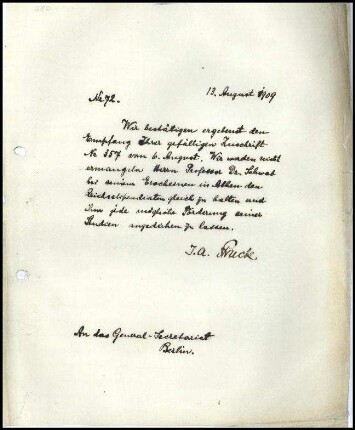 13. August 1909
No 72.
Wir bestätigen ergebenst den
Empfang Ihrer gefälligen Zuschrift
No 357 vom 6. August. Wir werden nicht
ermangeln Herrn Professor Dr. Schwab
bei seinem Erscheinen in Athen den
Reichsstipendiaten gleich zu halten und
ihm jede mögliche Förderung seiner
Studien angedeihen zu lassen.
I. A. Struck
An das General-Secretariat
Berlin.